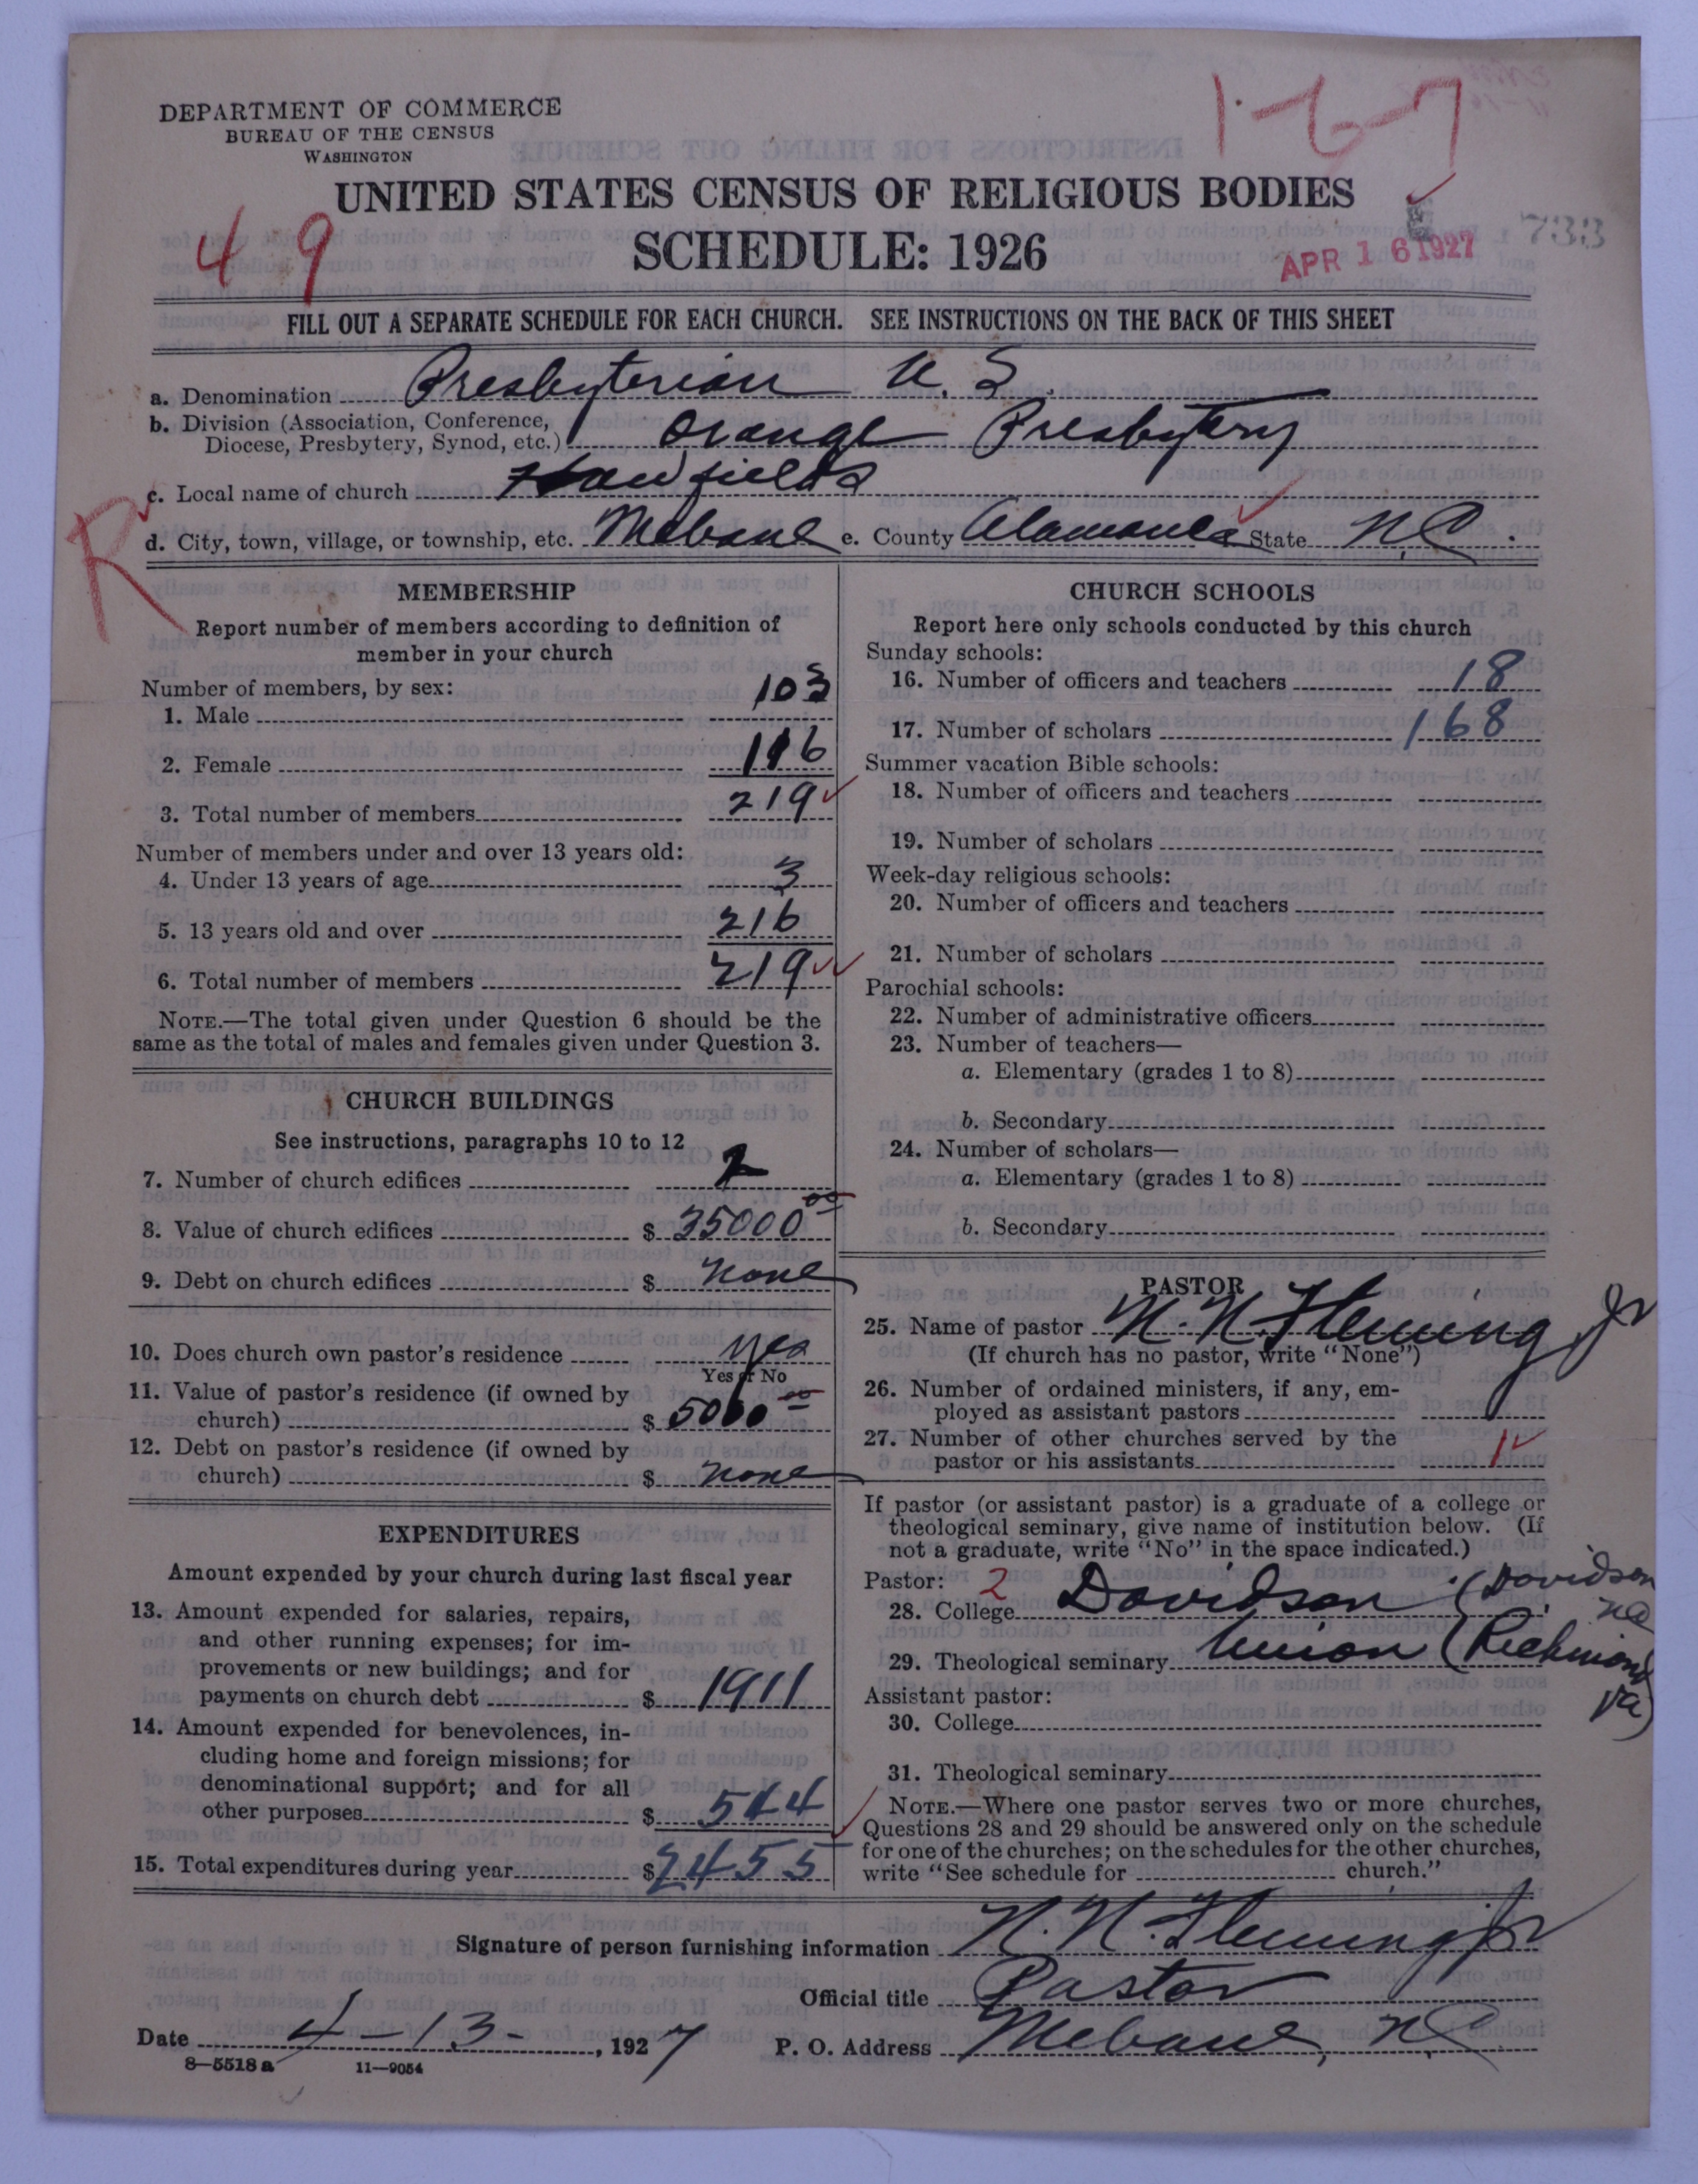 1-6-7
DEPARTMENT OF COMMERCE
BUREAU OF THE CENSUS
WASHINGTON
UNITED STATES CENSUS OF RELIGIOUS BODIES
49
SCHEDULE: 1926
733
APR 16 1927
FILL OUT A SEPARATE SCHEDULE FOR EACH CHURCH. SEE INSTRUCTIONS ON THE BACK OF THIS SHEET
a. Denomination Presbyterian U. S.
b. Division (Association, Conference,
Diocese, Presbytery, Synod, etc.) Orange Presbytery
R
c. Local name of church Hawfields
d. City, town, village, or township, etc. Mebane e. County Alamance State N.C.
MEMBERSHIP
Report number of members according to definition of
member in your church
Number of members, by sex:
1. Male 103
2. Female 116
3. Total number of members 219
Number of members under and over 13 years old:
4. Under 13 years of age 3
5. 13 years old and over 216
6. Total number of members 219
NOTE.—The total given under Question 6 should be the
same as the total of males and females given under Question 3.
CHURCH BUILDINGS
See instructions, paragraphs 10 to 12
7. Number of church edifices
8. Value of church edifices $ 35000 00
9. Debt on church edifices $ none
10. Does church own pastor's residence yes
Yes or No
11. Value of pastor's residence (if owned by
church) $ 5000 00
12. Debt on pastor's residence (if owned by
church) $ none
EXPENDITURES
Amount expended by your church during last fiscal year
13. Amount expended for salaries, repairs,
and other running expenses; for im-
provements or new buildings; and for
payments on church debt $ 1911
14. Amount expended for benevolences, in-
cluding home and foreign missions; for
denominational support; and for all
other purposes $ 544
15. Total expenditures during year $ 2455
CHURCH SCHOOLS
Report here only schools conducted by this church
Sunday schools:
16. Number of officers and teachers 18
17. Number of scholars 168
Summer vacation Bible schools:
18. Number of officers and teachers
19. Number of scholars
Week-day religious schools:
20. Number of officers and teachers
21. Number of scholars
Parochial schools:
22. Number of administrative officers
23. Number of teachers—
a. Elementary (grades 1 to 8)
b. Secondary
24. Number of scholars—
a. Elementary (grades 1 to 8)
b. Secondary
PASTOR
25. Name of pastor N. N. Fleming Jr
(If church has no pastor, write "None")
26. Number of ordained ministers, if any, em-
ployed as assistant pastors
27. Number of other churches served by the
pastor or his assistants 1
If pastor (or assistant pastor) is a graduate of a college or
theological seminary, give name of institution below. (If
not a graduate, write "No" in the space indicated.)
Pastor: 2
28. College Davidson (Davidson NC
29. Theological seminary Union (Richmond Va)
Assistant pastor:
30. College
31. Theological seminary
NOTE.—Where one pastor serves two or more churches,
Questions 28 and 29 should be answered only on the schedule
for one of the churches; on the schedules for the other churches,
write "See schedule for church."
Signature of person furnishing information N. N. Fleming Jr
Official title Pastor
Date 4-13-, 1927 P. O. Address Mebane, N.C.
8—5518 a 11—9054